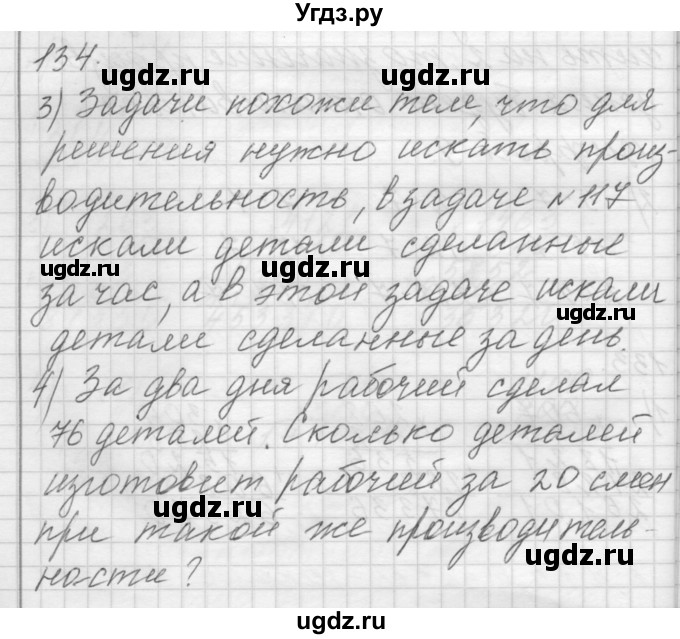 Угдз.ру
134.
ugdz.ru ugdz.ru
3) Задачи похожи тем, что для
решения нужно искать произ-
водительность, в задаче №117
искали детали сделанные
ugdz.ru ugdz.ru ugdz.ru
за час, а в этой задаче искали
детали сделанные за день.
4) За два дня рабочий сделал
76 деталей. Сколько деталей
изготовит рабочий за 20 смен
ugdz.ru ugdz.ru
при такой же производитель-
ности?
ugdz.ru
ugdz.ru